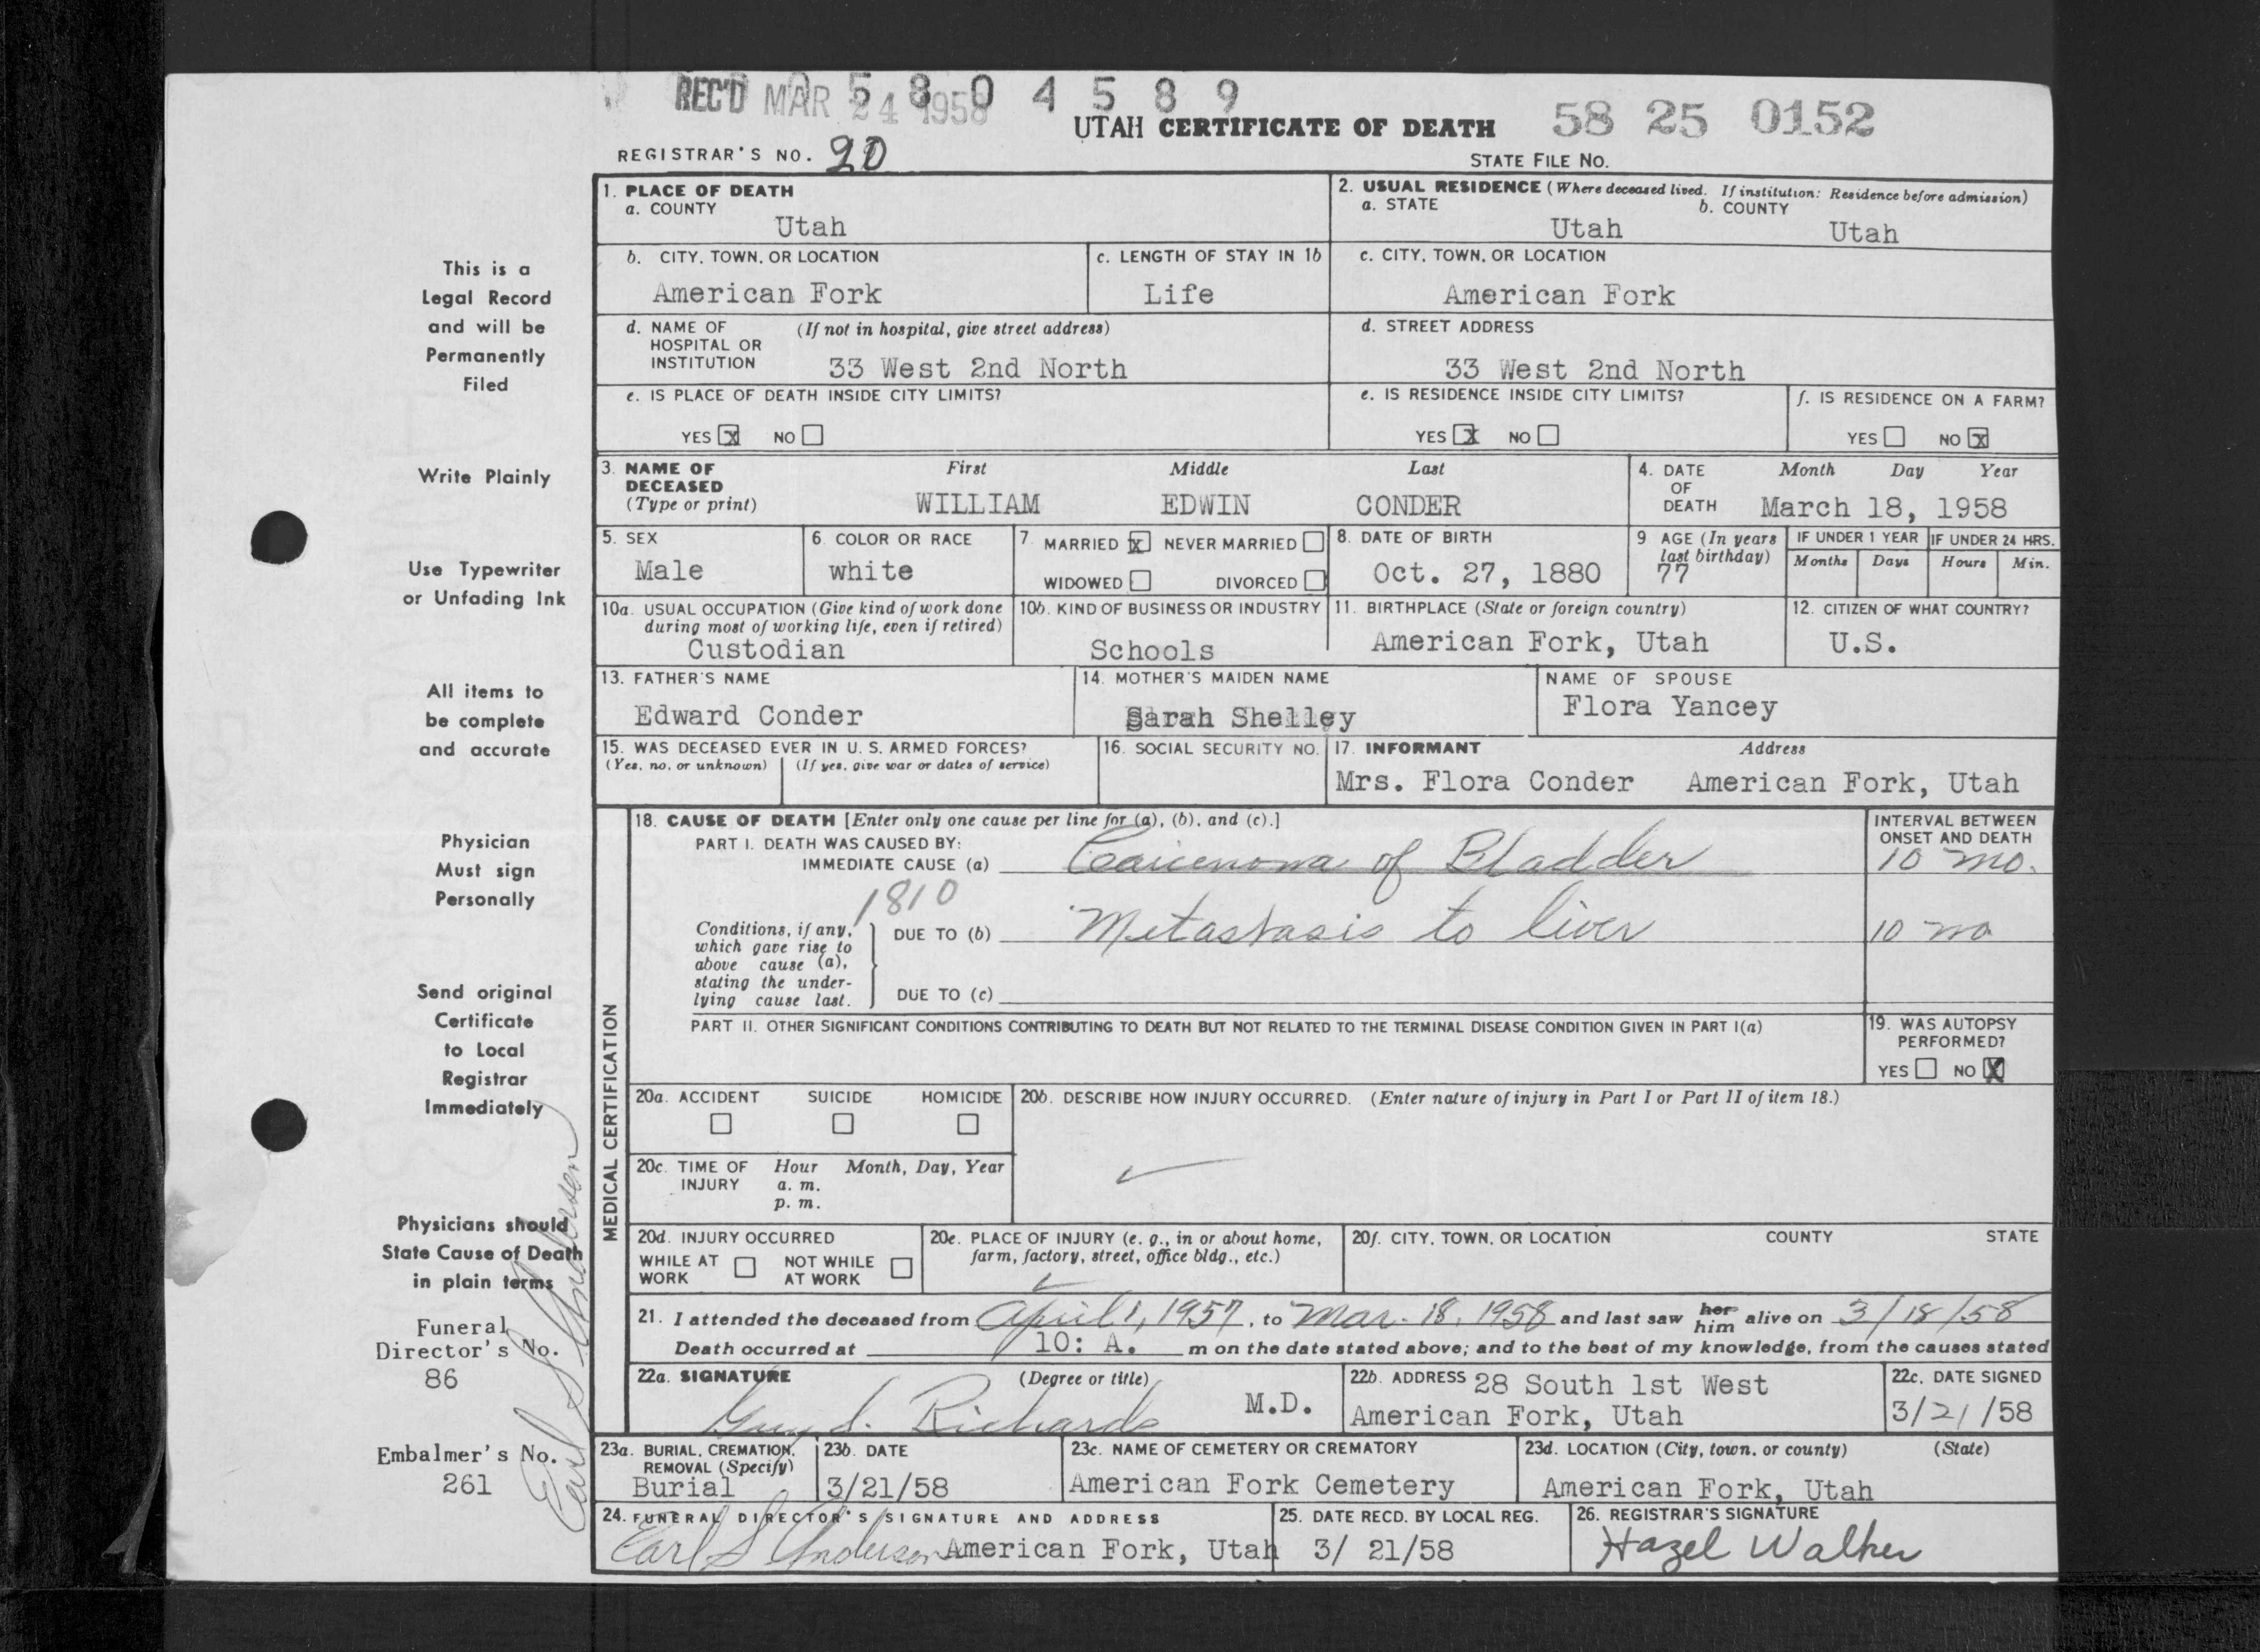 REC'D MAR 24 1958
5 8 0 4 5 8 9
UTAH CERTIFICATE OF DEATH
58 25 0152
REGISTRAR'S NO. 20
STATE FILE No.
This is a
Legal Record
and will be
Permanently
Filed
Write Plainly
Use Typewriter
or Unfading Ink
All items to
be complete
and accurate
Physician
Must sign
Personally
Send original
Certificate
to Local
Registrar
Immediately
Physicians should
State Cause of Death
in plain terms
Funeral
Director's No.
86
Embalmer's No.
261
Earl S Anderson
1. PLACE OF DEATH
a. COUNTY
Utah
2. USUAL RESIDENCE (Where deceased lived. If institution: Residence before admission)
a. STATE
Utah
b. COUNTY
Utah
b. CITY, TOWN, OR LOCATION
American Fork
c. LENGTH OF STAY IN 1b
Life
c. CITY, TOWN, OR LOCATION
American Fork
d. NAME OF (If not in hospital, give street address)
HOSPITAL OR
INSTITUTION 33 West 2nd North
d. STREET ADDRESS
33 West 2nd North
e. IS PLACE OF DEATH INSIDE CITY LIMITS?
YES X NO
e. IS RESIDENCE INSIDE CITY LIMITS?
YES X NO
f. IS RESIDENCE ON A FARM?
YES NO X
3. NAME OF DECEASED (Type or print)
First Middle Last
WILLIAM EDWIN CONDER
4. DATE OF DEATH
Month Day Year
March 18, 1958
5. SEX
Male
6. COLOR OR RACE
white
7. MARRIED X NEVER MARRIED
WIDOWED DIVORCED
8. DATE OF BIRTH
Oct. 27, 1880
9 AGE (In years
last birthday)
77
IF UNDER 1 YEAR
Months Days
IF UNDER 24 HRS.
Hours Min.
10a. USUAL OCCUPATION (Give kind of work done
during most of working life, even if retired)
Custodian
10b. KIND OF BUSINESS OR INDUSTRY
Schools
11. BIRTHPLACE (State or foreign country)
American Fork, Utah
12. CITIZEN OF WHAT COUNTRY?
U.S.
13. FATHER'S NAME
Edward Conder
14. MOTHER'S MAIDEN NAME
Sarah Shelley
NAME OF SPOUSE
Flora Yancey
15. WAS DECEASED EVER IN U. S. ARMED FORCES?
(Yes, no, or unknown) (If yes, give war or dates of service)
16. SOCIAL SECURITY NO.
17. INFORMANT Address
Mrs. Flora Conder American Fork, Utah
MEDICAL CERTIFICATION
18. CAUSE OF DEATH [Enter only one cause per line for (a), (b), and (c).]
INTERVAL BETWEEN
ONSET AND DEATH
PART I. DEATH WAS CAUSED BY:
IMMEDIATE CAUSE (a) Carcenoma of Bladder 10 mo.
1810
Conditions, if any,
which gave rise to
above cause (a),
stating the under-
lying cause last.
DUE TO (b) Metastasis to liver 10 mo
DUE TO (c)
PART II. OTHER SIGNIFICANT CONDITIONS CONTRIBUTING TO DEATH BUT NOT RELATED TO THE TERMINAL DISEASE CONDITION GIVEN IN PART I(a)
19. WAS AUTOPSY
PERFORMED?
YES NO X
20a. ACCIDENT SUICIDE HOMICIDE
20b. DESCRIBE HOW INJURY OCCURRED. (Enter nature of injury in Part I or Part II of item 18.)
20c. TIME OF INJURY
Hour Month, Day, Year
a. m.
p. m.
20d. INJURY OCCURRED
WHILE AT WORK NOT WHILE AT WORK
20e. PLACE OF INJURY (e. g., in or about home,
farm, factory, street, office bldg., etc.)
20f. CITY, TOWN, OR LOCATION COUNTY STATE
21. I attended the deceased from April 1, 1957, to Mar. 18, 1958 and last saw her him alive on 3/18/58
Death occurred at 10: A. m on the date stated above; and to the best of my knowledge, from the causes stated
22a. SIGNATURE (Degree or title)
Guy S. Richards M.D.
22b. ADDRESS 28 South 1st West
American Fork, Utah
22c. DATE SIGNED
3/21/58
23a. BURIAL, CREMATION,
REMOVAL (Specify)
Burial
23b. DATE
3/21/58
23c. NAME OF CEMETERY OR CREMATORY
American Fork Cemetery
23d. LOCATION (City, town, or county) (State)
American Fork, Utah
24. FUNERAL DIRECTOR'S SIGNATURE AND ADDRESS
Earl S Anderson American Fork, Utah
25. DATE RECD. BY LOCAL REG.
3/ 21/58
26. REGISTRAR'S SIGNATURE
Hazel Walker